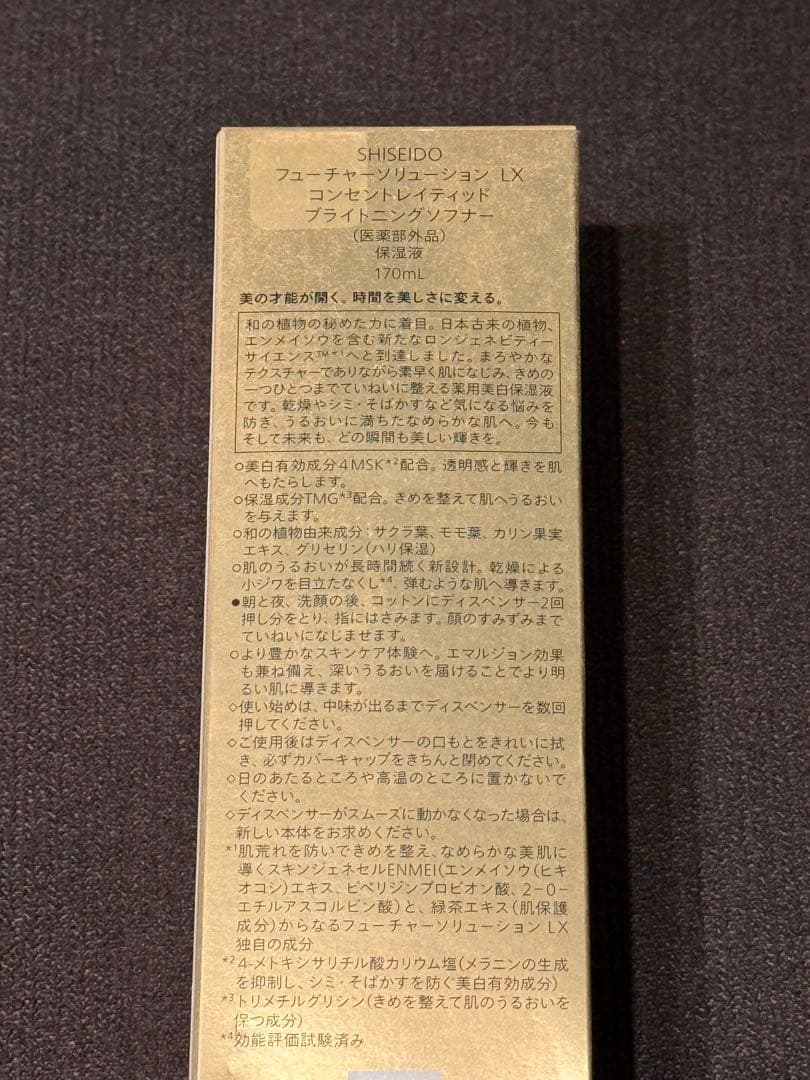 SHISEIDO
フューチャーソリューション LX
コンセントレイティッド
ブライトニングソフナー
(医薬部外品)
保湿液
170mL
美の才能が開く。時間を美しさに変える。
和の植物の秘めた力に着目。日本古来の植物、
エンメイソウを含む新たなロンジェネビティー
サイエンス™*1へと到達しました。まろやかな
テクスチャーでありながら素早く肌になじみ、きめの
一つひとつまでていねいに整える薬用美白保湿液
です。乾燥やシミ・そばかすなど気になる悩みを
防ぎ、うるおいに満ちたなめらかな肌へ。今も
そして未来も、どの瞬間も美しい輝きを。
○美白有効成分4MSK*2配合。透明感と輝きを肌
へもたらします。
○保湿成分TMG*3配合。きめを整えて肌へうるおい
を与えます。
○和の植物由来成分:サクラ葉、モモ葉、カリン果実
エキス、グリセリン(ハリ保湿)
○肌のうるおいが長時間続く新設計。乾燥による
小ジワを目立たなくし*4、弾むような肌へ導きます。
●朝と夜、洗顔の後、コットンにディスペンサー2回
押し分をとり、指にはさみます。顔のすみずみまで
ていねいになじませます。
○より豊かなスキンケア体験へ。エマルジョン効果
も兼ね備え、深いうるおいを届けることでより明
るい肌に導きます。
◇使い始めは、中味が出るまでディスペンサーを数回
押してください。
◇ご使用後はディスペンサーの口もとをきれいに拭
き、必ずカバーキャップをきちんと閉めてください。
◇日のあたるところや高温のところに置かないで
ください。
◇ディスペンサーがスムーズに動かなくなった場合は、
新しい本体をお求めください。
*1肌荒れを防いできめを整え、なめらかな美肌に
導くスキンジェネセルENMEI(エンメイソウ(ヒキ
オコシ)エキス、ピペリジンプロピオン酸、2-O-
エチルアスコルビン酸)と、緑茶エキス(肌保護
成分)からなるフューチャーソリューション LX
独自の成分
*24-メトキシサリチル酸カリウム塩(メラニンの生成
を抑制し、シミ・そばかすを防ぐ美白有効成分)
*3トリメチルグリシン(きめを整えて肌のうるおいを
保つ成分)
*4効能評価試験済み